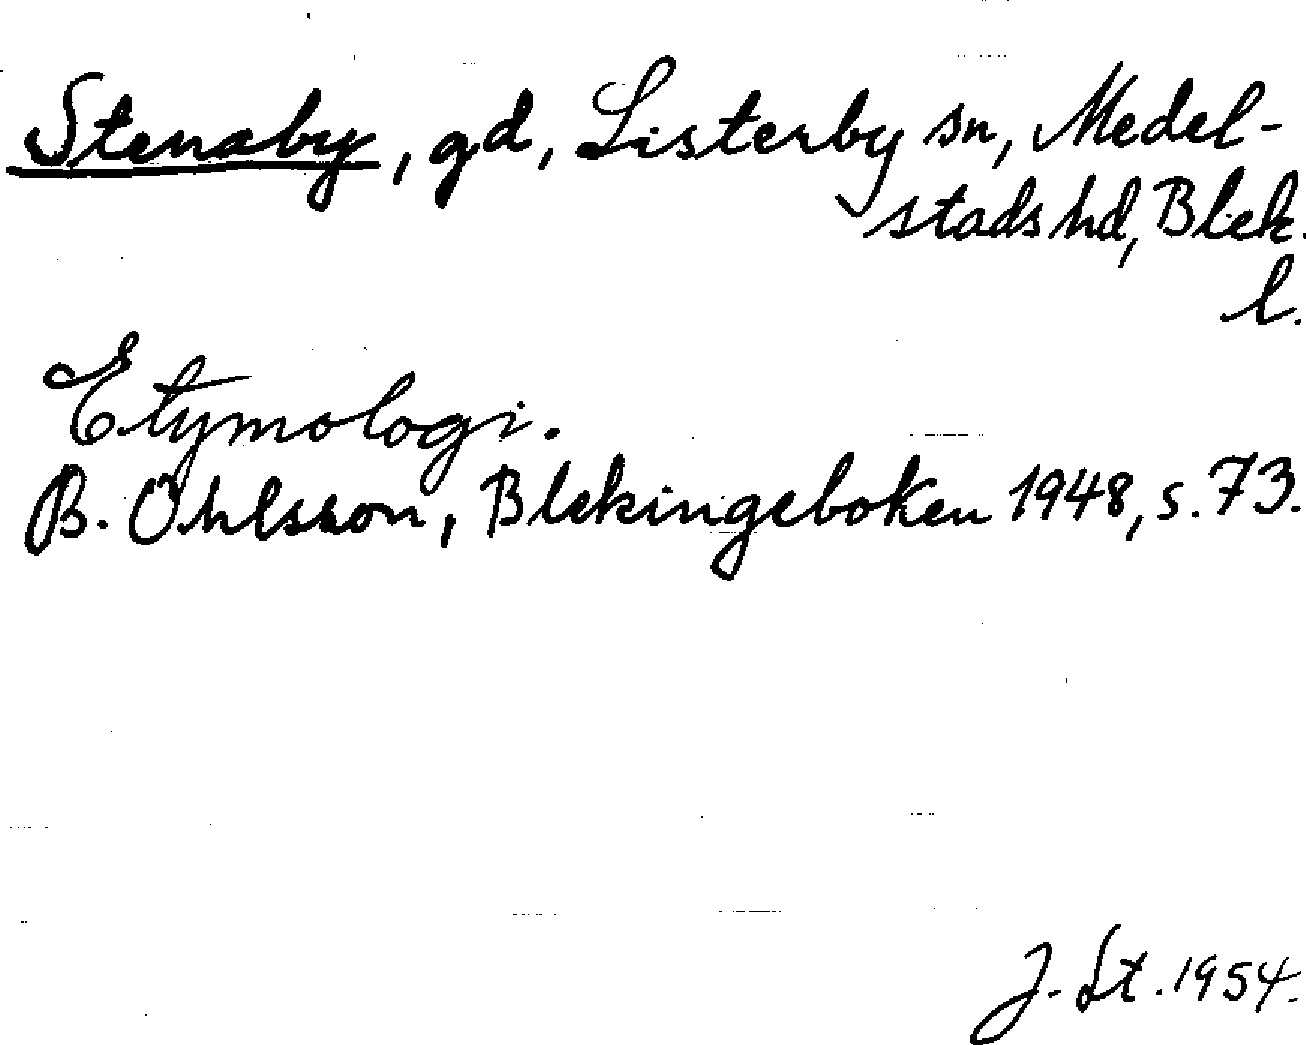 Stenaby, gd, Listerby sn, Medel-
stads hd, Blek.
l.
Etymologi.
B. Öhlsson, Blekingeboken 1948, s. 73.
J. St. 1954.